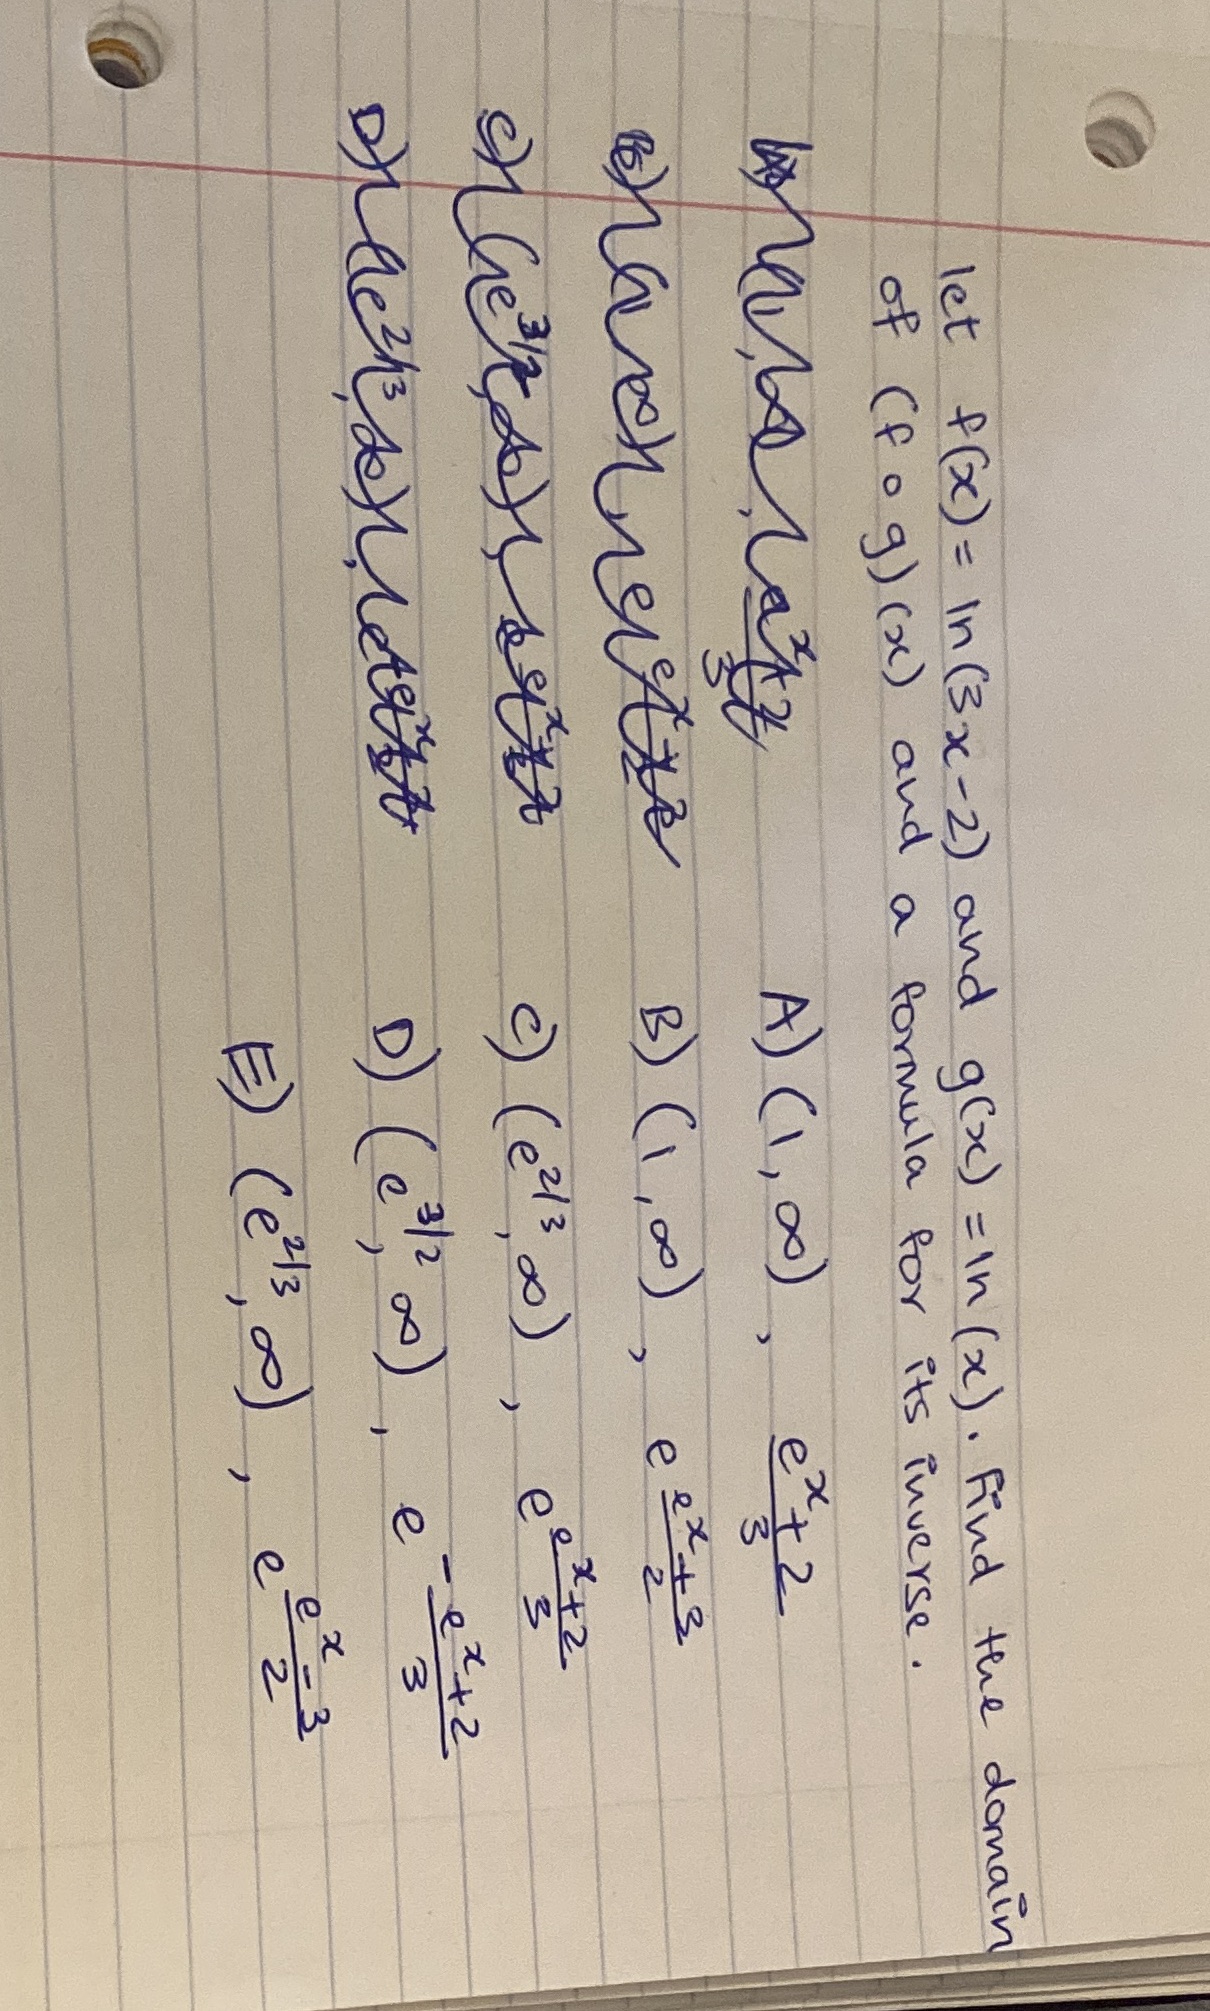 let f(x) = ln(3x-2) and g(x) = ln(x). Find the domain
of (f∘g)(x) and a formula for its inverse.
A) (1, ∞), (e^x+2)/3
B) (1, ∞), e^((e^x+3)/2)
C) (e^(2/3), ∞), e^((e^x+2)/3)
D) (e^(3/2), ∞), e^(-(e^x+2)/3)
E) (e^(2/3), ∞), e^((e^x-3)/2)